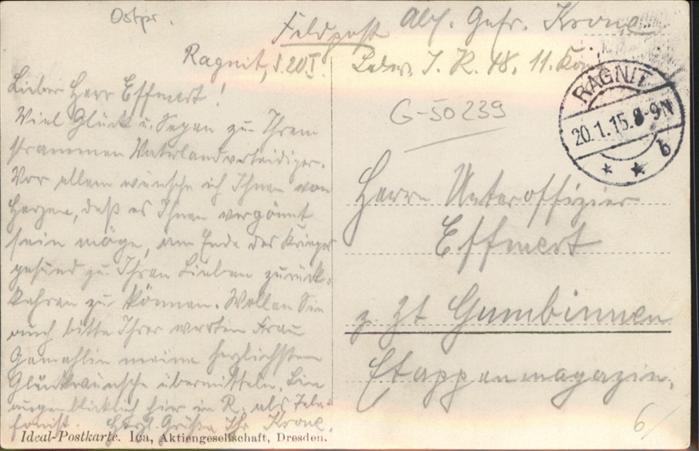 Ostpr.
Feldpost Abs. Gefr. Krone
Ragnit, d. 20.I. Ldw. I. R. 48. 11. Kom
RAGNIT
20.1.15.8-9N
b
G-50239
Lieber Herr Effmert!
Viel Glück u. Segen zu Ihrem
strammen Vaterlandverteidiger.
Vor allem wünsche ich Ihnen von
Herzen, daß es Ihnen vergönnt
sein möge, am Ende des Krieges
gesund zu Ihren Lieben zurück-
kehren zu können. Wollen Sie
auch bitte Ihrer werten Frau
Gemahlin meine herzlichsten
Glückwünsche übermitteln. Bin
augenblicklich hier in R. als Tele-
fonist. Herzl. Grüße Ihr Krone.
Herrn Unteroffizier
Effmert
z. Zt Gumbinnen
Etappenmagazin.
6/
Ideal-Postkarte. Ica, Aktiengesellschaft, Dresden.